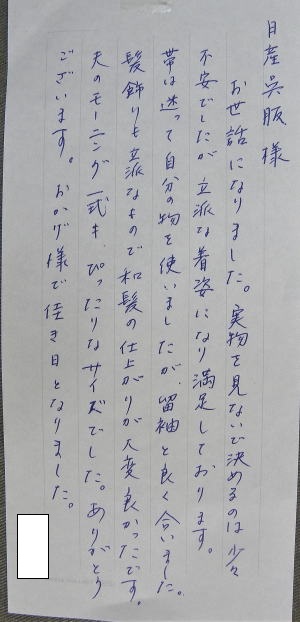 日産呉服様
お世話になりました。実物を見ないで決めるのは少々
不安でしたが立派な着姿になり満足しております。
帯は迷って自分の物を使いましたが、留袖と良く合いました。
髪飾りも立派なもので和髪の仕上がりが大変良かったです。
夫のモーニング一式も、ぴったりなサイズでした。ありがとう
ございます。おかげ様で佳き日となりました。